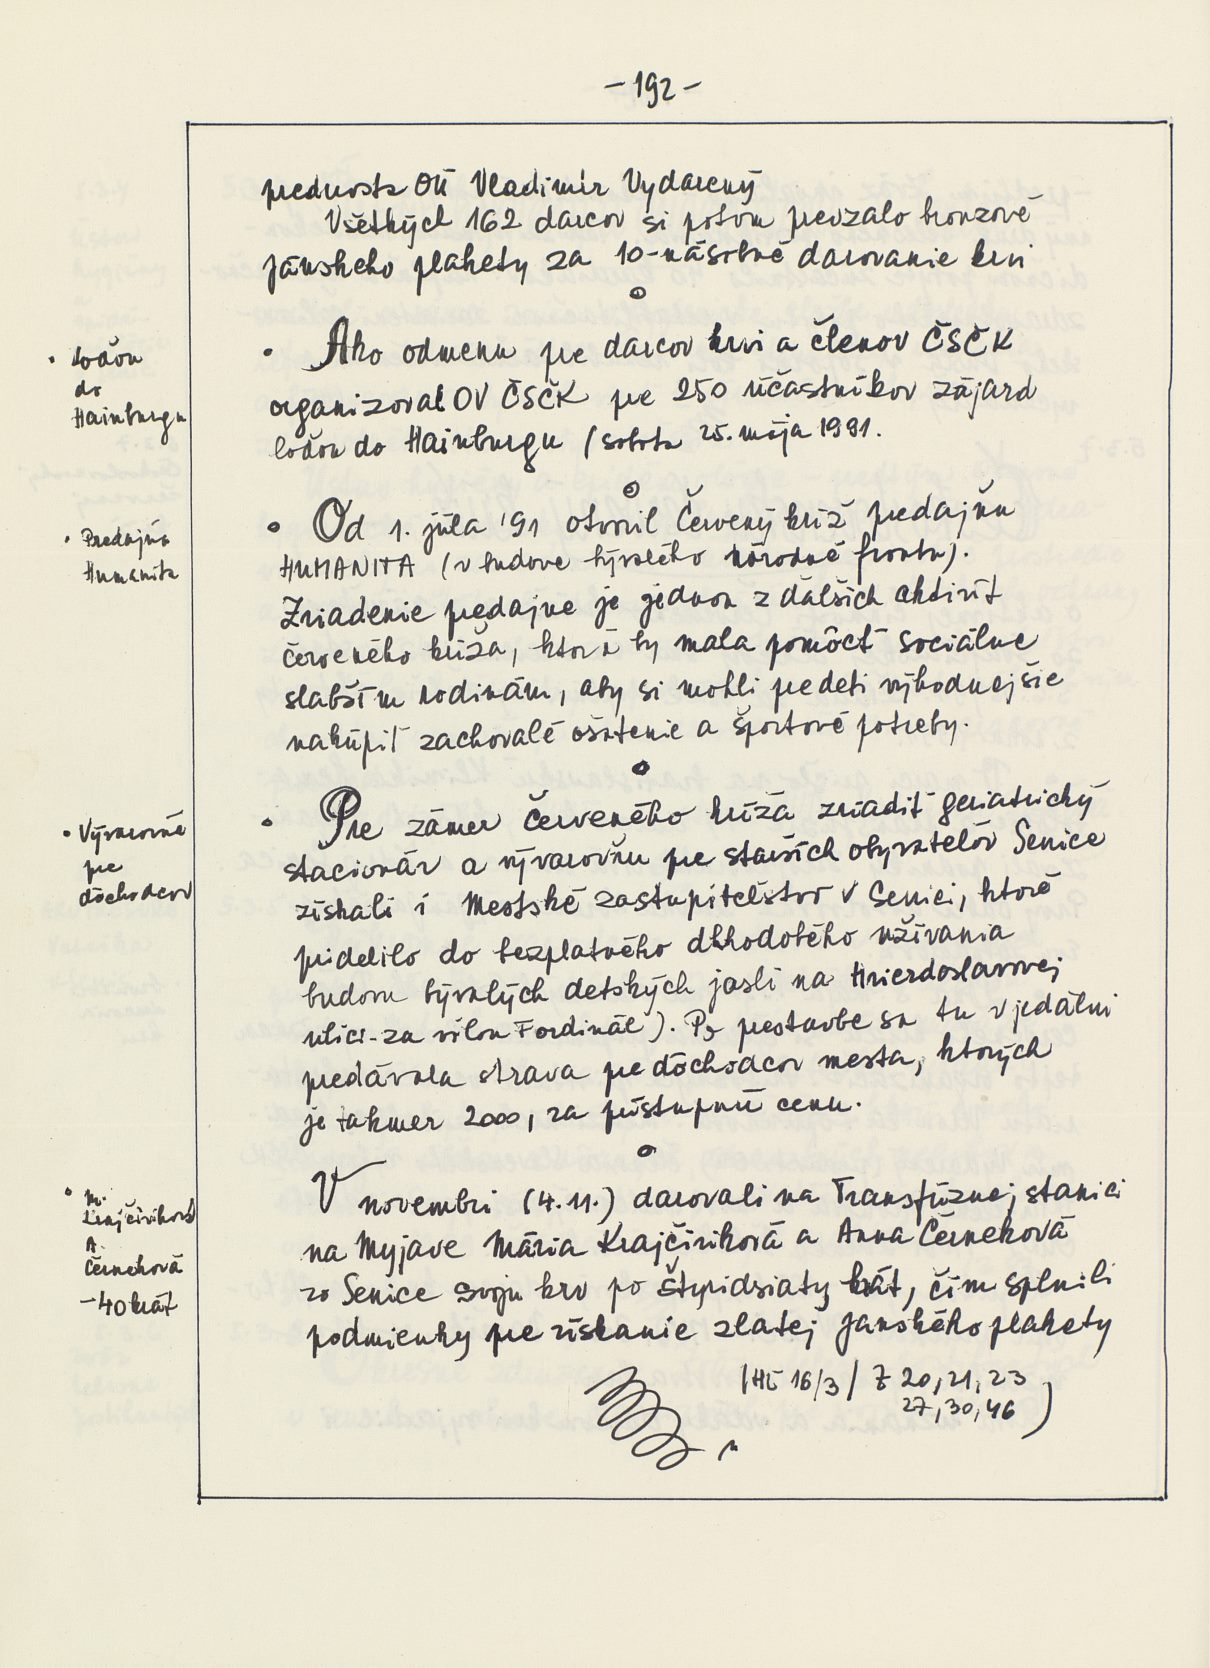 - 192 -
prednosta OÚ Vladimír Vydarený
Všetkých 162 darcov si potom prevzalo bronzové
jánskeho plakety za 10-násobné darovanie krvi
• Loďou
do
Hainburgu
• Ako odmenu pre darcov krvi a členov ČSČK
organizoval OV ČSČK pre 250 účastníkov zájazd
loďou do Hainburgu (sobota 25. mája 1991.
• Predajňa
Humanita
• Od 1. júla '91 otvoril Červený kríž predajňu
HUMANITA (v budove bývalého národné frontu).
Zriadenie predajne je jednou z ďalších aktivít
červeného kríža, ktorá by mala pomôcť sociálne
slabším rodinám, aby si mohli pre deti výhodnejšie
nakúpiť zachovalé ošatenie a športové potreby.
• Vývarovňa
pre
dôchodcov
• Pre zámer Červeného kríža zriadiť geriatrický
stacionár a vývarovňu pre starších obyvateľov Senice
získali i Mestské zastupiteľstvo v Senici, ktoré
pridelilo do bezplatného dlhodobého užívania
budovu bývalých detských jaslí na Hviezdoslavovej
ulici - za vilou Ferdinál). Po prestavbe sa tu v jedálni
predávala strava pre dôchodcov mesta, ktorých
je takmer 2000, za prístupnú cenu.
• M.
Krajčiríková
A.
Černeková
- 40 krát
V novembri (4.11.) darovali na Transfúznej stanici
na Myjave Mária Krajčiríková a Anna Černeková
zo Senice svoju krv po štyridsiaty krát, čím splnili
podmienky pre získanie zlatej Janského plakety
/HL 16/3/ Z 20, 21, 23
27, 30, 46)